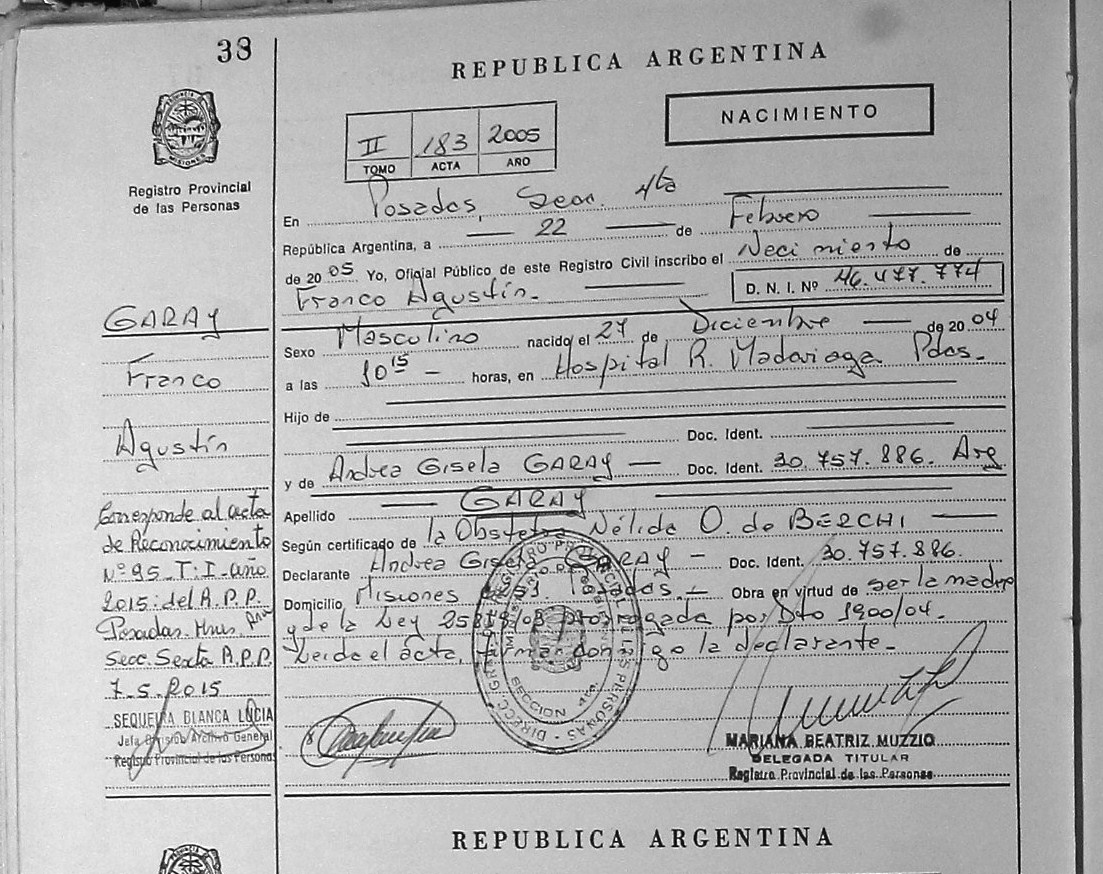 33
REPUBLICA ARGENTINA
NACIMIENTO
II 183 2005
TOMO ACTA AÑO
PROVINCIA DE MISIONES
Registro Provincial
de las Personas
En Posadas, Secc. 4ta
República Argentina, a 22 de Febrero
de 2005 Yo, Oficial Público de este Registro Civil inscribo el Nacimiento de
Franco Agustín. D. N. I. Nº 46.477.774
Sexo Masculino nacido el 27 de Diciembre de 2004
a las 10 15 horas, en Hospital R. Madariaga Pdas.
Hijo de
Doc. Ident.
y de Andrea Gisela GARAY Doc. Ident. 30.757.886. Arg
Apellido GARAY
Según certificado de la Obstetra Nélida O. de BERCHI
Declarante Andrea Gisela GARAY Doc. Ident. 30.757.886.
Domicilio Misiones Posadas. Obra en virtud de ser la madre
y de la Ley prorrogada por Dto 1900/04.
Leída el acta, firma conmigo la declarante.
GARAY
Franco
Agustín
Corresponde al acta
de Reconocimiento
Nº 95 T. I. año
2015 del R.P.P.
Posadas. Mnes.
Secc. Sexta R.P.P.
7.5.2015
SEQUEIRA BLANCA LUCIA
Jefa División Archivo General
Registro Provincial de las Personas
SECCION 4ta.
MARIANA BEATRIZ MUZZIO
DELEGADA TITULAR
Registro Provincial de las Personas
REPUBLICA ARGENTINA